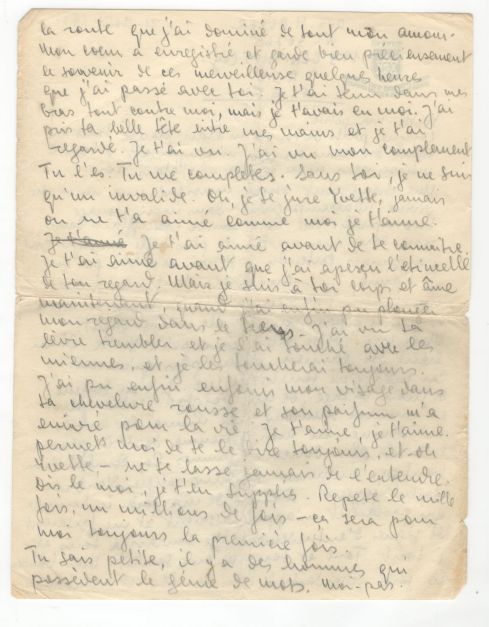 la route que j'ai dominé de tout mon amour.
Mon cœur a enregistré et garde bien précieusement
le souvenir de ces merveilleuse quelques heures
que j'ai passé avec toi. Je t'ai tenu dans mes
bras tout contre moi, mais je t'avais en moi. J'ai
pris ta belle tête entre mes mains et je t'ai
regardé. Je t'ai vu. J'ai vu mon complement
Tu l'es. Tu me completes. Sans toi, je ne suis
qu'un invalide. Oh, je te jure Yvette, jamais
on ne t'a aimé comme moi je t'aime.
Je t'aimé Je t'ai aimé avant de te connaitre.
Je t'ai aimé avant que j'ai aperçu l'étincelle
de ton regard. Mais je suis à toi corps et âme
maintenant, quand j'ai enfin pu plonger
mon regard dans le tiens. J'ai vu ta
lèvre trembler et je l'ai touché avec les
miennes, et je les toucherai toujours.
J'ai pu enfin enfouir mon visage dans
ta chevelure rousse et son parfum m'a
enivré pour la vie. Je t'aime, je t'aime.
permets moi de te le dire toujours, et oh
Yvette – ne te lasse jamais de l'entendre.
Dis le moi, je t'en supplie. Repete le mille
fois, un millions de fois – ça sera pour
moi toujours la première fois.
Tu sais petite, il y a des hommes qui
possèdent le génie de mots, moi pas.